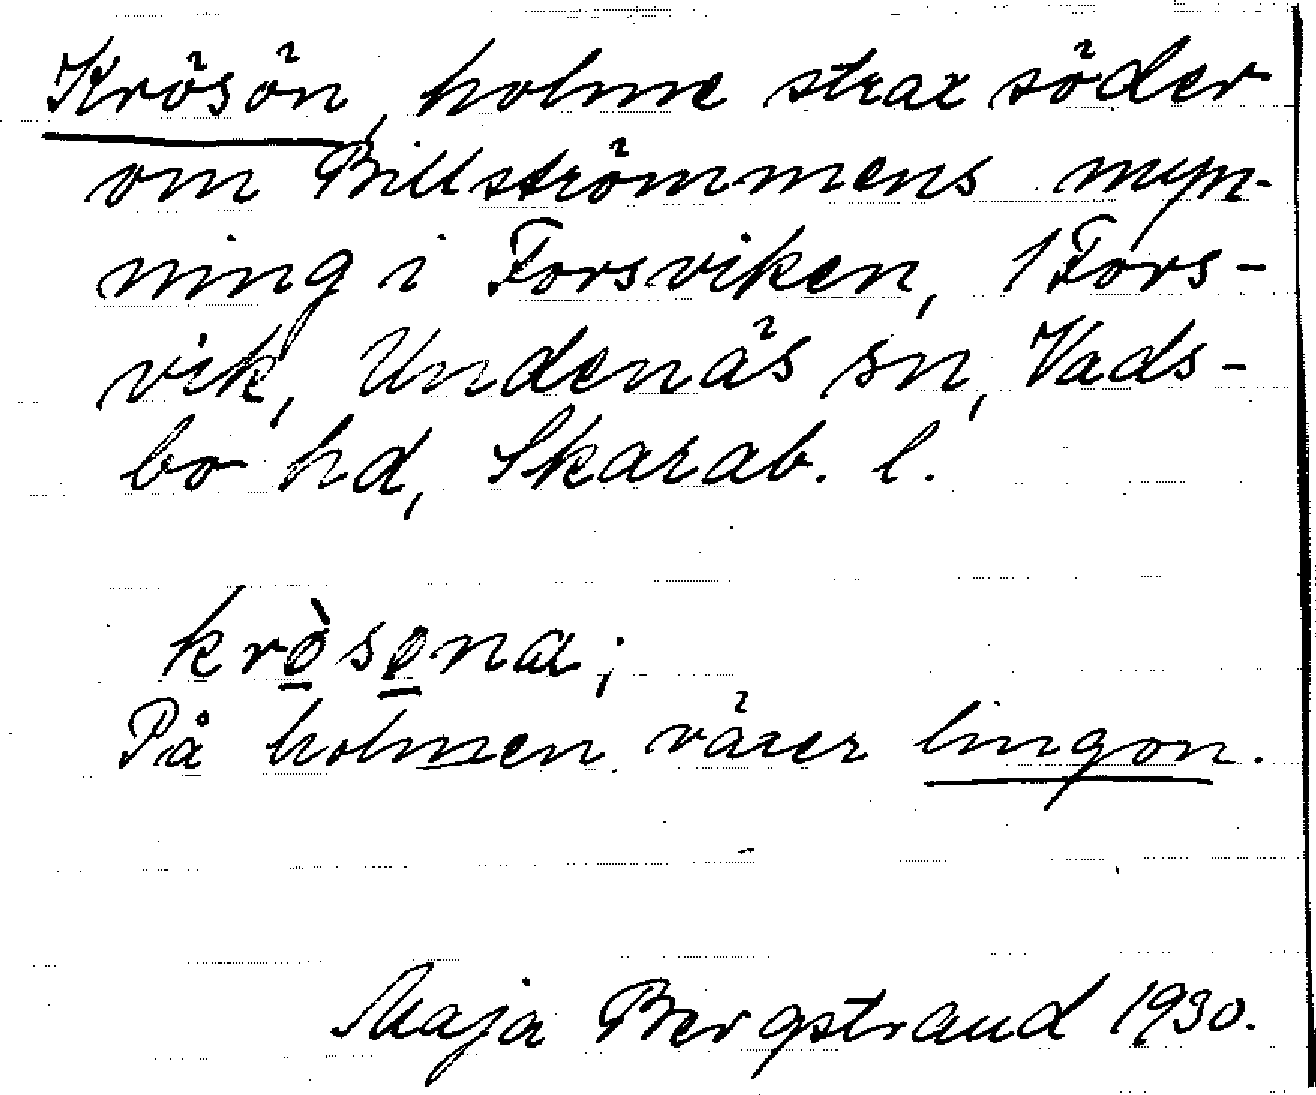 Krösön, holme strax söder
om Billströmmens myn-
ning i Forsviken, 1 Fors-
vik, Undenäs sn, Vads-
bo hd, Skarab. l.
krò̱so̱na;
På holmen växer lingon.
Maja Bergstrand 1930.